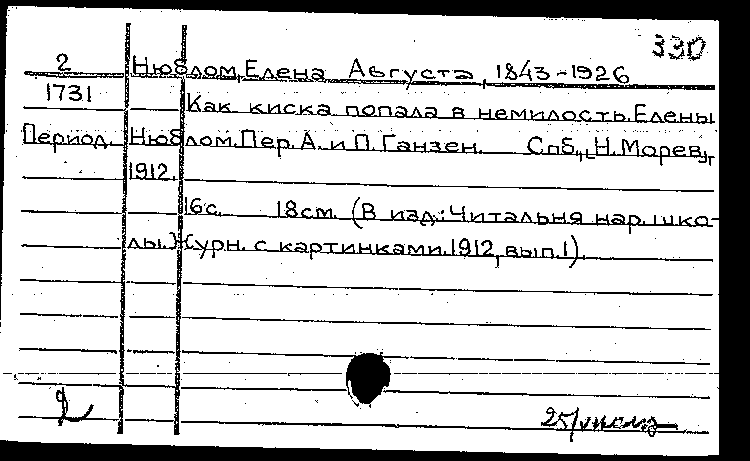 330
2 Нюблом, Елена Августа, 1843-1926
1731 Как киска попала в немилость. Елены
Период. Нюблом. Пер. А. и П. Ганзен. Спб., Н. Морев,
1912.
16с. 18см. (В изд.: Читальня нар. шко-
лы. Журн. с картинками. 1912, вып. 1).
25/